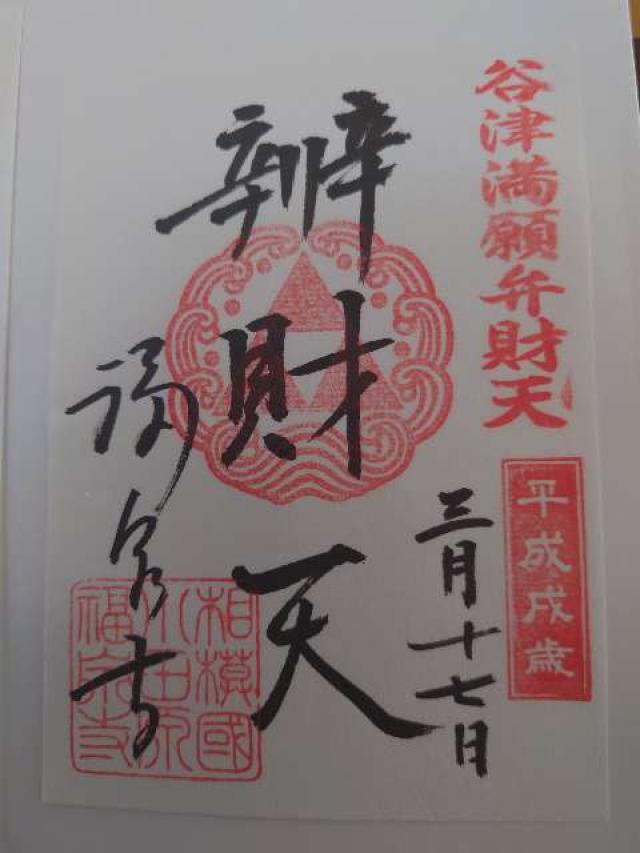 谷津満願弁財天
平成戌歳
三月十七日
辨財天
福泉寺
相模國
小田原
福泉寺